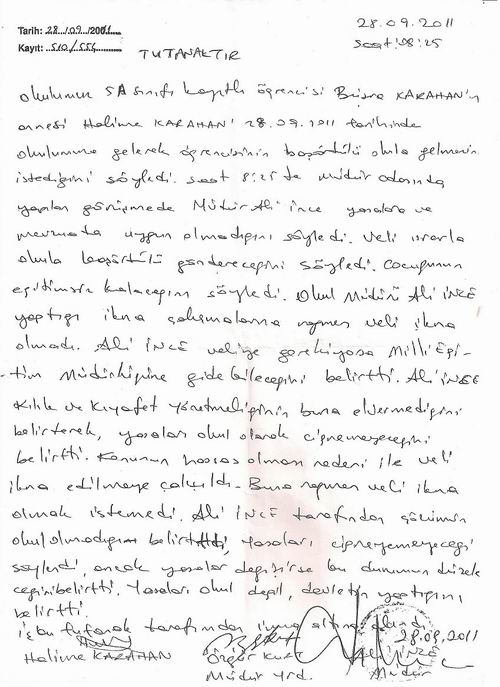 Tarih: 28/09/2011
Kayıt: 510/554
28.09.2011
saat: 08:25
TUTANAKTIR
okulumuz 5A sınıfı kayıtlı öğrencisi Büşra KARAHAN'ın
annesi Halime KARAHAN' 28.09.2011 tarihinde
okulumuza gelerek öğrencisinin başörtülü okula gelmesini
istediğini söyledi. saat 8:25 te müdür odasında
yapılan görüşmede Müdür Ali ince yasalara ve
mevzuata uygun olmadığını söyledi. Veli ısrarla
okula başörtülü göndereceğini söyledi. Çocuğunun
eğitimsiz kalacağını söyledi. Okul Müdürü Ali İNCE
yaptığı ikna çalışmalarına rağmen veli ikna
olmadı. Ali İNCE veliye gerekiyorsa Milli Eği-
tim Müdürlüğüne gidebileceğini belirtti. Ali İNCE
Kılık ve Kıyafet Yönetmeliğinin buna elvermediğini
belirterek, yasaları okul olarak çiğnemeyeceğini
belirtti. Konunun hassas olması nedeni ile veli
ikna edilmeye çalışıldı. Buna rağmen veli ikna
olmak istemedi. Ali İNCE tarafından çözümün
okul olmadığını belirtti, Yasaları çiğneyemeyeceği
söylendi, ancak yasalar değişirse bu durumun düzele
ceğini belirtti. Yasaları okul değil, devletin yaptığını
belirtti.
iş bu tutanak tarafından imza altına alındı
28.09.2011
Halime KARAHAN Özgür Kurt Ali İNCE
Müdür Yrd. Müdür